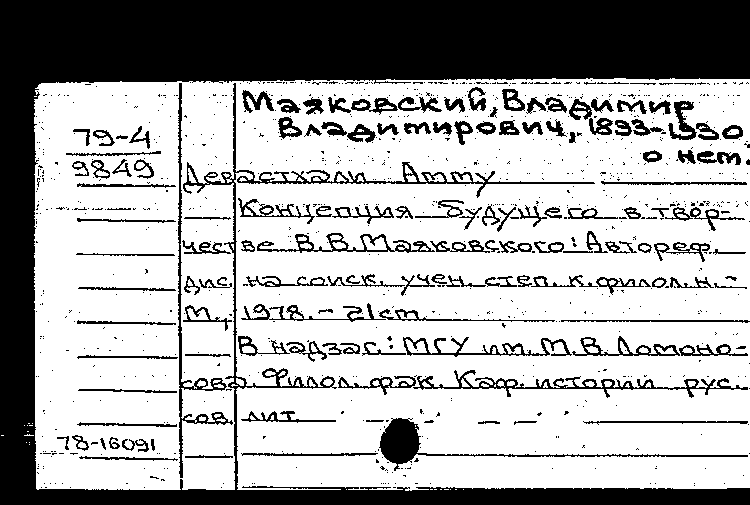 Маяковский, Владимир
Владимирович, 1893-1930
о нем.
79-4
9849
Девастхали Атту
Концепция будущего в твор-
честве В.В.Маяковского: Автореф.
дис. на соиск. учен. степ. к.филол.н. -
М., 1978. - 21 ст.
В надзаг.: МГУ им. М.В. Ломоно-
сова. Филол. фак. Каф. истории рус.
сов. лит.
78-16091